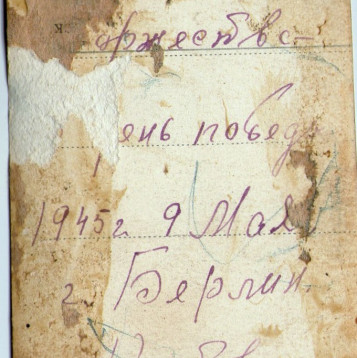 оржество
ень побед
1945г 9 Мая
г. Берлин.